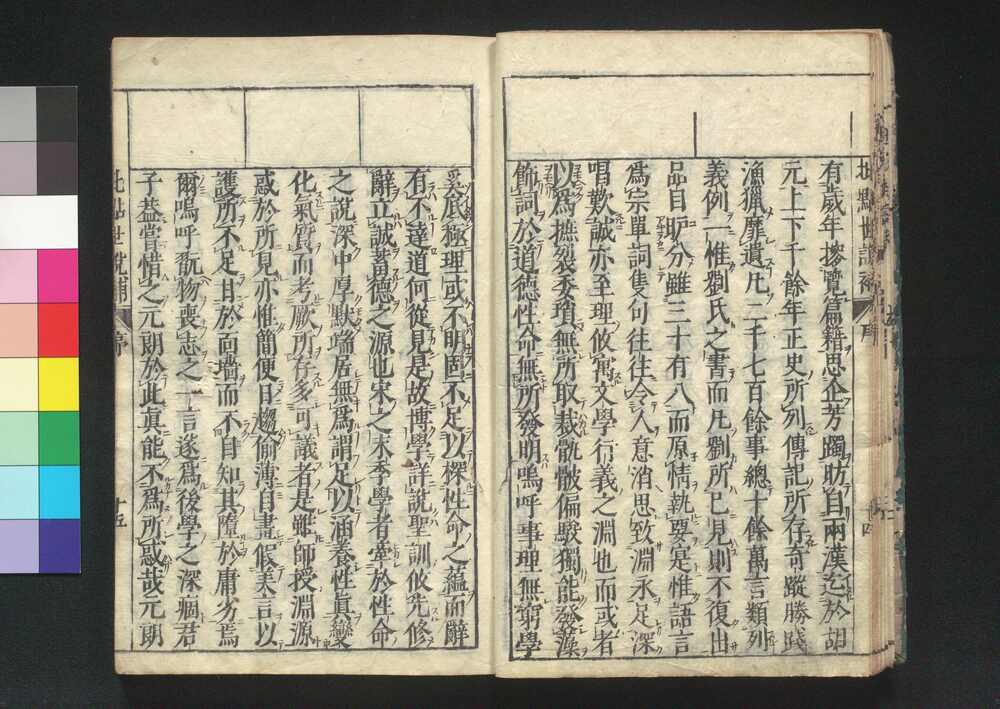 批點世說補
有歲年摻覽篇籍思企芳躅昉自兩漢迄於胡
元上下千餘年正史所列傳記所存奇蹤勝踐
漁獵靡遺凡二千七百餘事總十餘萬言類列
義例一惟劉氏之書而凡劉所已見則不復出
品目所分雖三十有八而原情執要寔惟語言
為宗單詞隻句往往令人意消思致淵永足深
唱歎誠亦至理攸寓文學行義之淵也而或者
以為撫裂委瑣無所取裁骫骳偏駁獨能發藻
飾詞於道德性命無所發明嗚呼事理無窮學
奚底極理或不明固不足以探性命之蘊而辭
有不達道何從見是故博學詳說聖訓攸先修
辭立誠蓄德之源也宋之末季學者牽於性命
之說深中厚默端居無為謂足以涵養性真變
化氣質而考厥所存多可議者是雖師授淵源
惑於所見亦惟簡便日趨偷薄自畫假美言以
護所不足甘於面墻而不自知其墮於庸劣焉
爾嗚呼翫物喪志之一言遂為後學之深痼君
子蓋嘗惜之元朗於此真能不為所惑哉元朗
批點世說補 序 十五